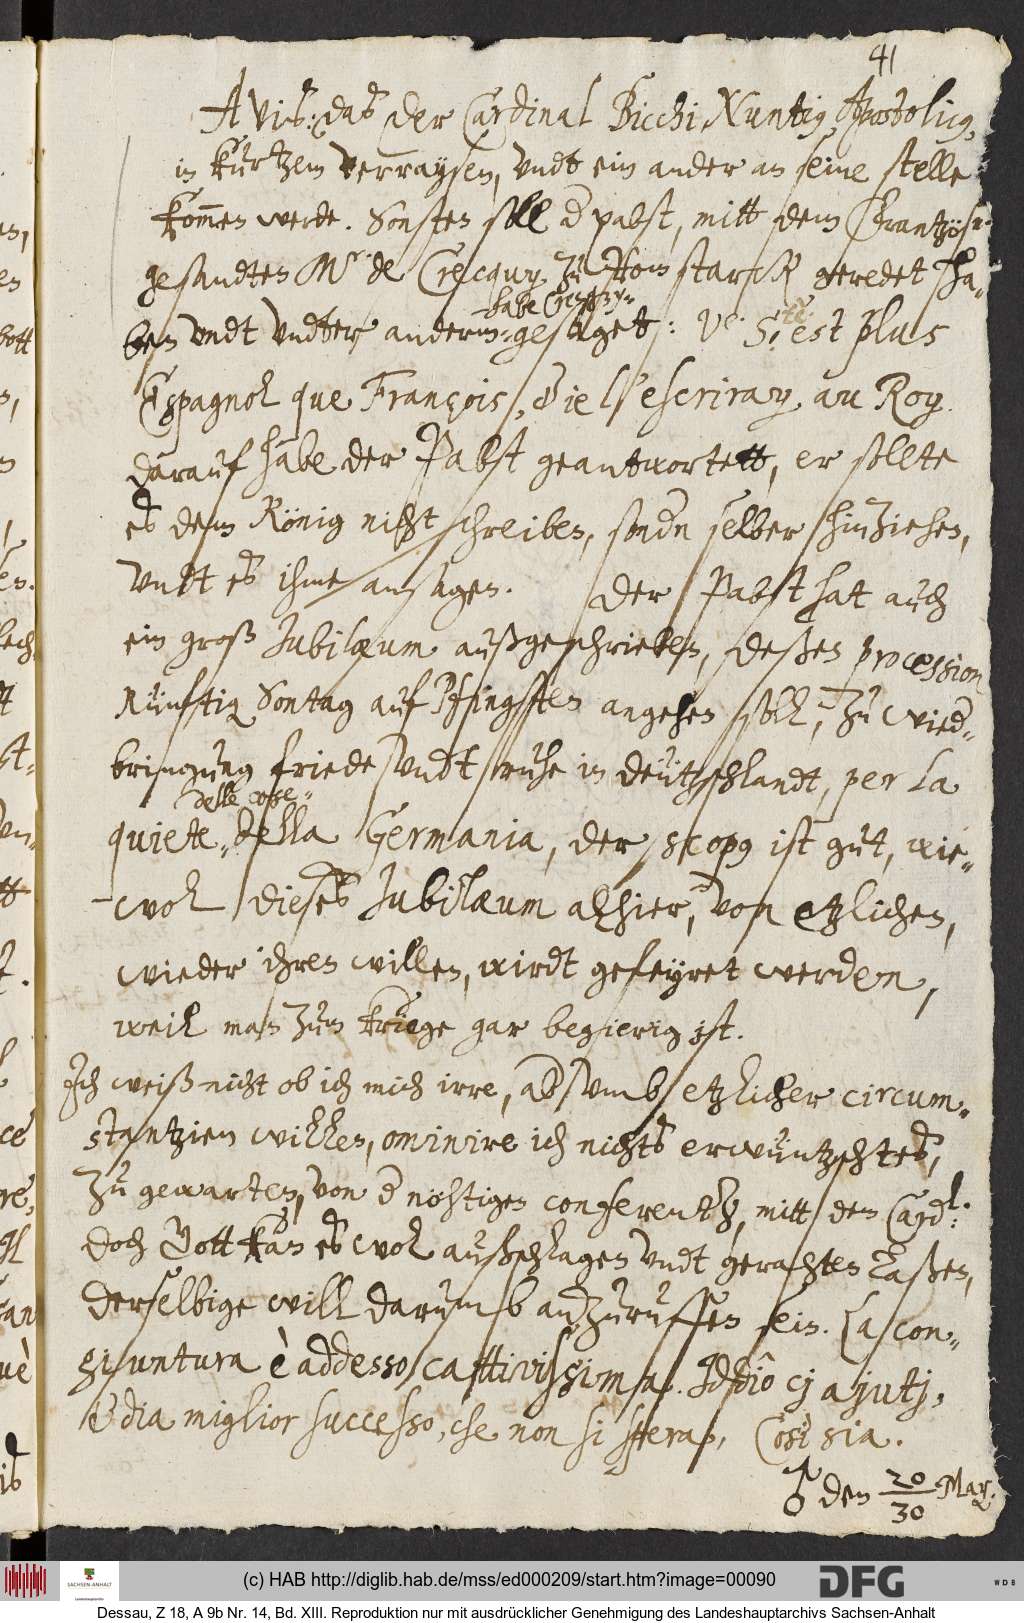 41
Avis: daß der Cardinal Bicchi, Nuntius Apostolicus,
in kurtzem verraysen, undt ein ander an seine stelle
kommen werde. Sonsten soll der pabst, mitt dem Frantzös:
gesandten Mr. de Crecquy zu Rom starck geredet ha-
habe Crecquy
ben undt undter anderm: gesaget: Ve. Sté. est plus
Espagnol que François, & je l'escriray au Roy.
darauf habe der Pabst geantwortett, er sollte
es dem König nicht schreiben, sondern selber hinziehen,
undt es ihme ansagen. Der Pabst hat auch
ein groß Jubilæum außgeschrieben, deßen procession
künftig Sontag auf Pfingsten angehen soll, zu wied-
bringung friede undt ruhe in deützschlandt, per la
delle cose
quiete della Germania, der scopus ist gut, wie-
wol dieses Jubilæum alhier, von etzlichen,
wieder ihren willen, wirdt gefeyret werden,
weil man zum kriege gar begierig ist.
Ich weiß nicht ob ich mich irre, ab umb etzlicher circum-
stantzien willen, ominire ich nichts erwüntzschtes,
zu gewarten, von der nöhtigen conferentz, mitt den Cardl:
doch Gott kan es wol außschlagen undt gerahten laßen,
derselbige will darumb anzuruffen sein. La con-
giuntura è addesso cattivissima. Iddio cj ajutj,
& dia miglior successo, che non si spera, Così sia.
♂ den 20/30 May.
(c) HAB http://diglib.hab.de/mss/ed000209/start.htm?image=00090
SACHSEN-ANHALT
DFG
WDB
Dessau, Z 18, A 9b Nr. 14, Bd. XIII. Reproduktion nur mit ausdrücklicher Genehmigung des Landeshauptarchivs Sachsen-Anhalt